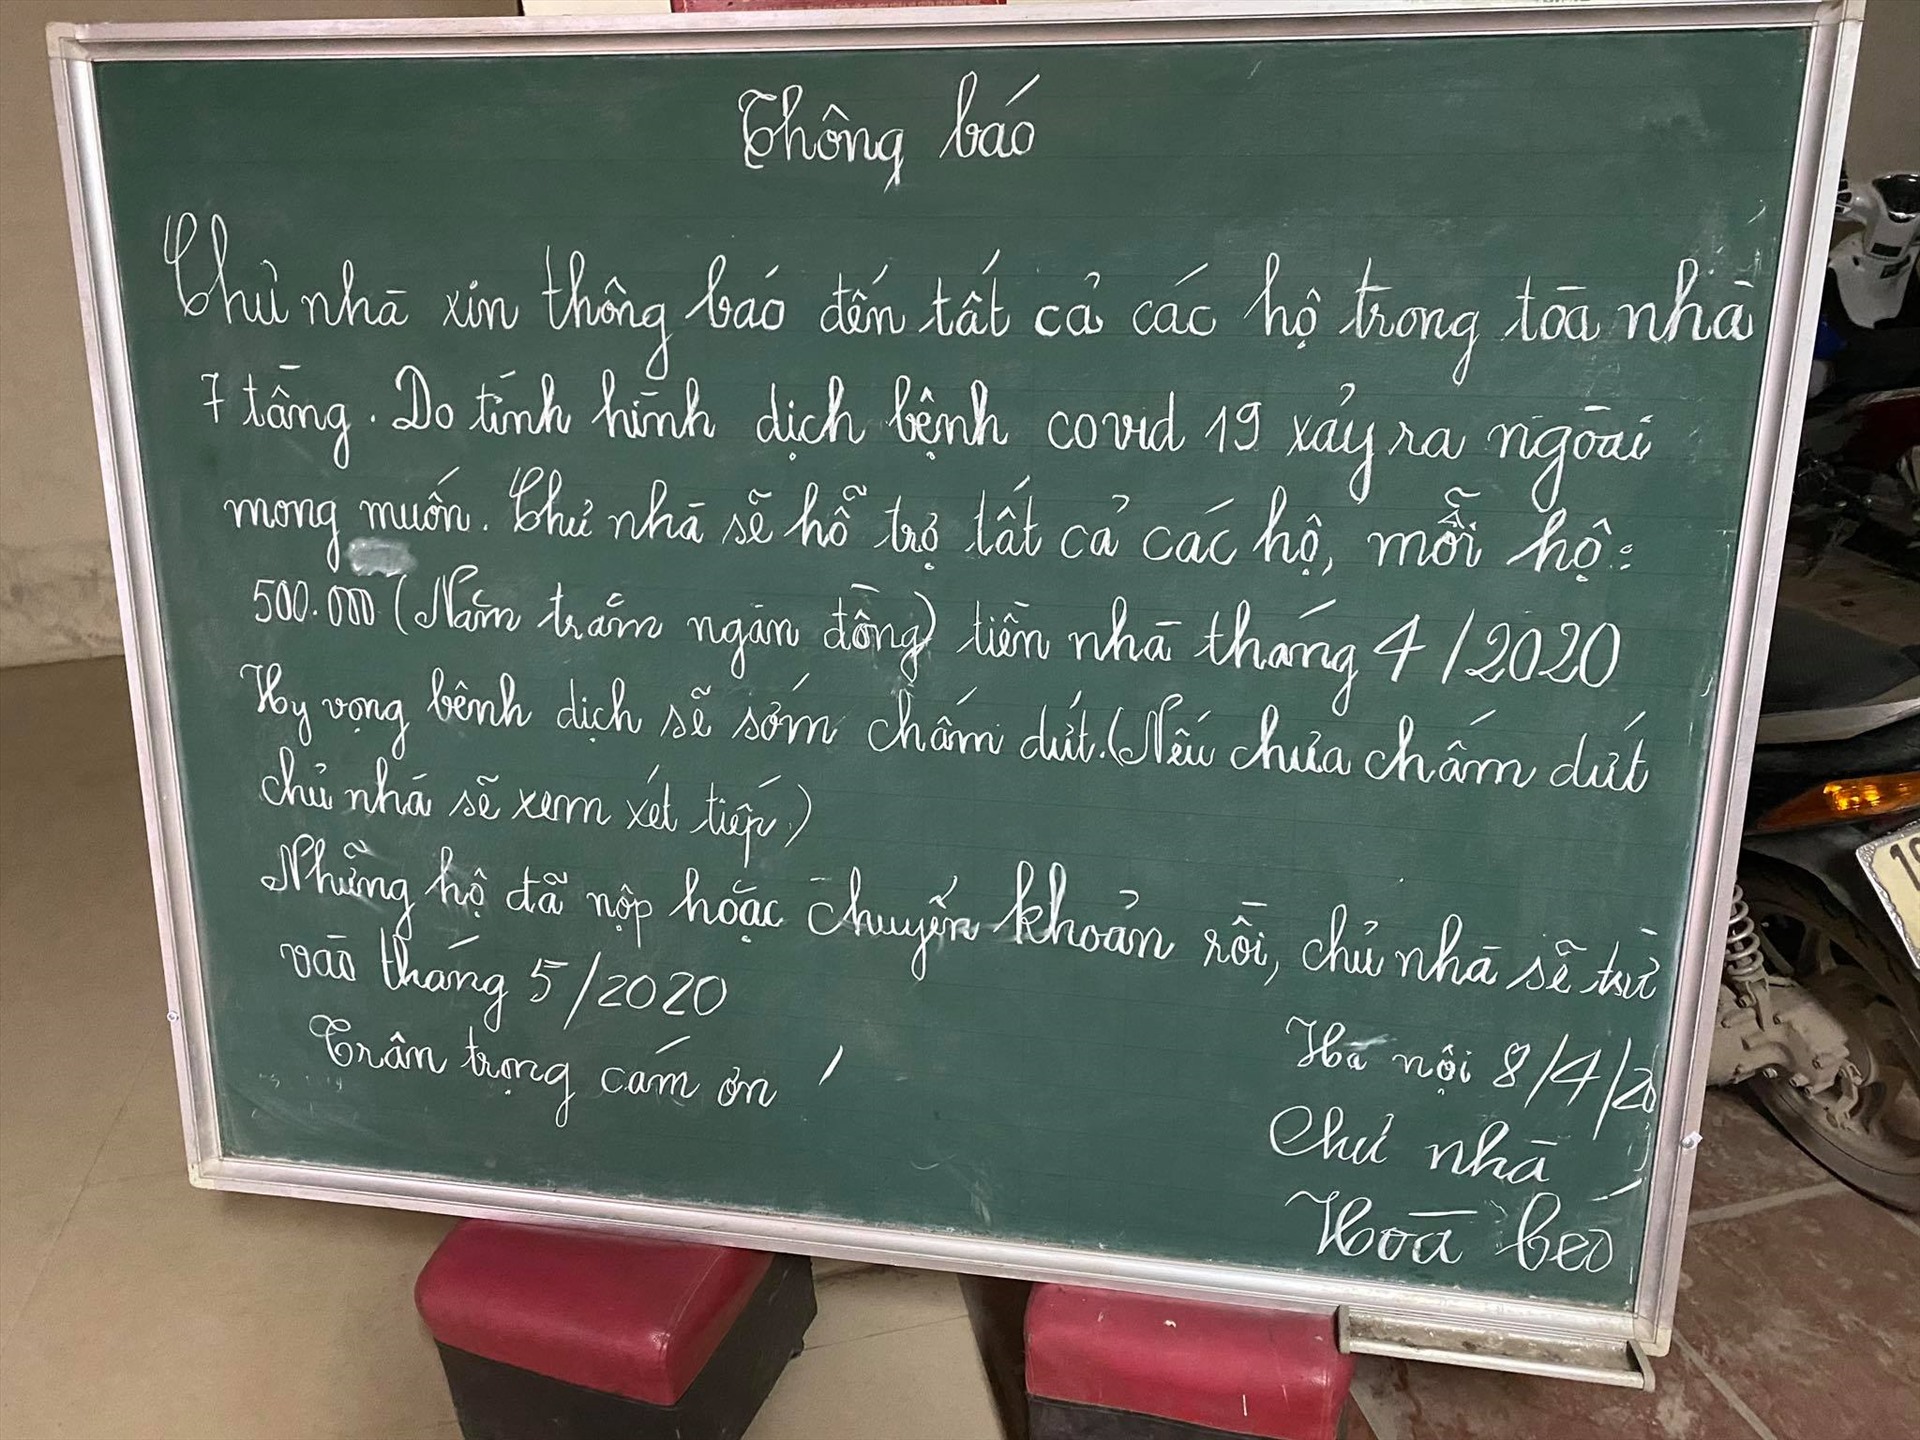 Thông báo
Chủ nhà xin thông báo đến tất cả các hộ trong toà nhà
7 tầng. Do tình hình dịch bệnh covid 19 xảy ra ngoài
mong muốn. Chủ nhà sẽ hỗ trợ tất cả các hộ, mỗi hộ:
500.000 (Năm trăm ngàn đồng) tiền nhà tháng 4/2020
Hy vọng bệnh dịch sẽ sớm chấm dứt. (Nếu chưa chấm dứt
chủ nhà sẽ xem xét tiếp)
Những hộ đã nộp hoặc chuyển khoản rồi, chủ nhà sẽ trừ
vào tháng 5/2020
Trân trọng cám ơn
Hà nội 8/4/20
Chủ nhà
Hoà béo